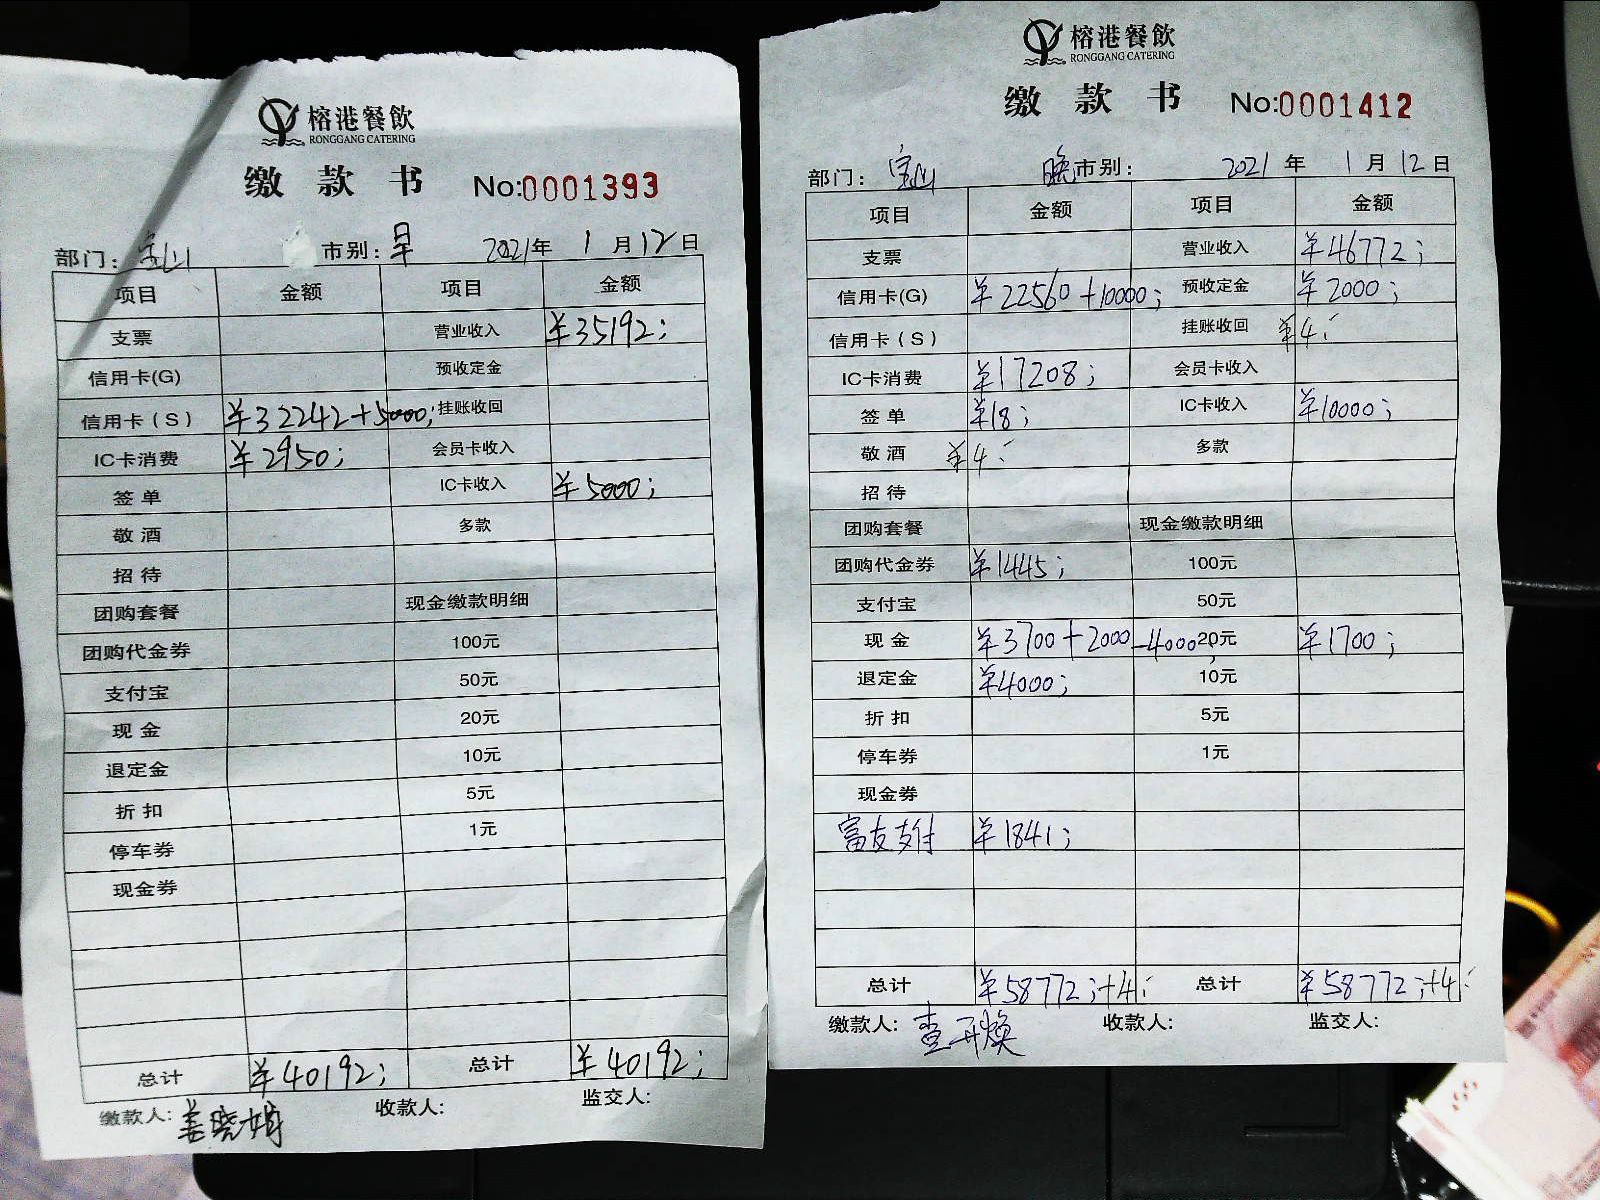 榕港餐飲
RONGGANG CATERING
缴 款 书 No:0001393
部门: 宝山 市别: 早 2021年 1月12日
项目 金额 项目 金额
支票 营业收入 ¥35192;
信用卡(G) 预收定金
信用卡(S) ¥32242+5000; 挂账收回
IC卡消费 ¥2950; 会员卡收入
签单 IC卡收入 ¥5000;
敬酒 多款
招待
团购套餐 现金缴款明细
团购代金券 100元
支付宝 50元
现金 20元
退定金 10元
折扣 5元
停车券 1元
现金券
总计 ¥40192; 总计 ¥40192;
缴款人: 姜晓娟 收款人: 监交人:
榕港餐飲
RONGGANG CATERING
缴 款 书 No:0001412
部门: 宝山 晚市别: 2021年 1月12日
项目 金额 项目 金额
支票 营业收入 ¥46772;
信用卡(G) ¥22560+10000; 预收定金 ¥2000;
信用卡(S) 挂账收回 ¥4;
IC卡消费 ¥17208; 会员卡收入
签单 ¥18; IC卡收入 ¥10000;
敬酒 ¥4; 多款
招待
团购套餐 现金缴款明细
团购代金券 ¥1445; 100元
支付宝 50元
现金 ¥3700+2000-4000; 20元 ¥1700;
退定金 ¥4000; 10元
折扣 5元
停车券 1元
现金券
富友支付 ¥1841;
总计 ¥58772;+4; 总计 ¥58772;+4;
缴款人: 收款人: 监交人: